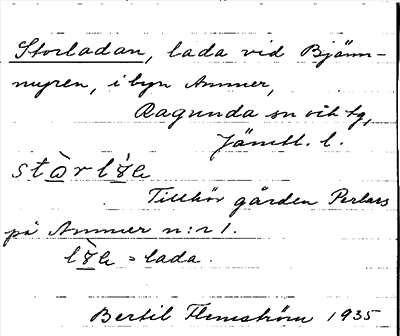 Storladan, lada vid Bjänn-
myren, i byn Ammer,
Ragunda sn och tg,
Jämtl. l.
Tillhör gården Perlars
på Ammer n:r 1.
= lada.
Bertil Flemström 1935